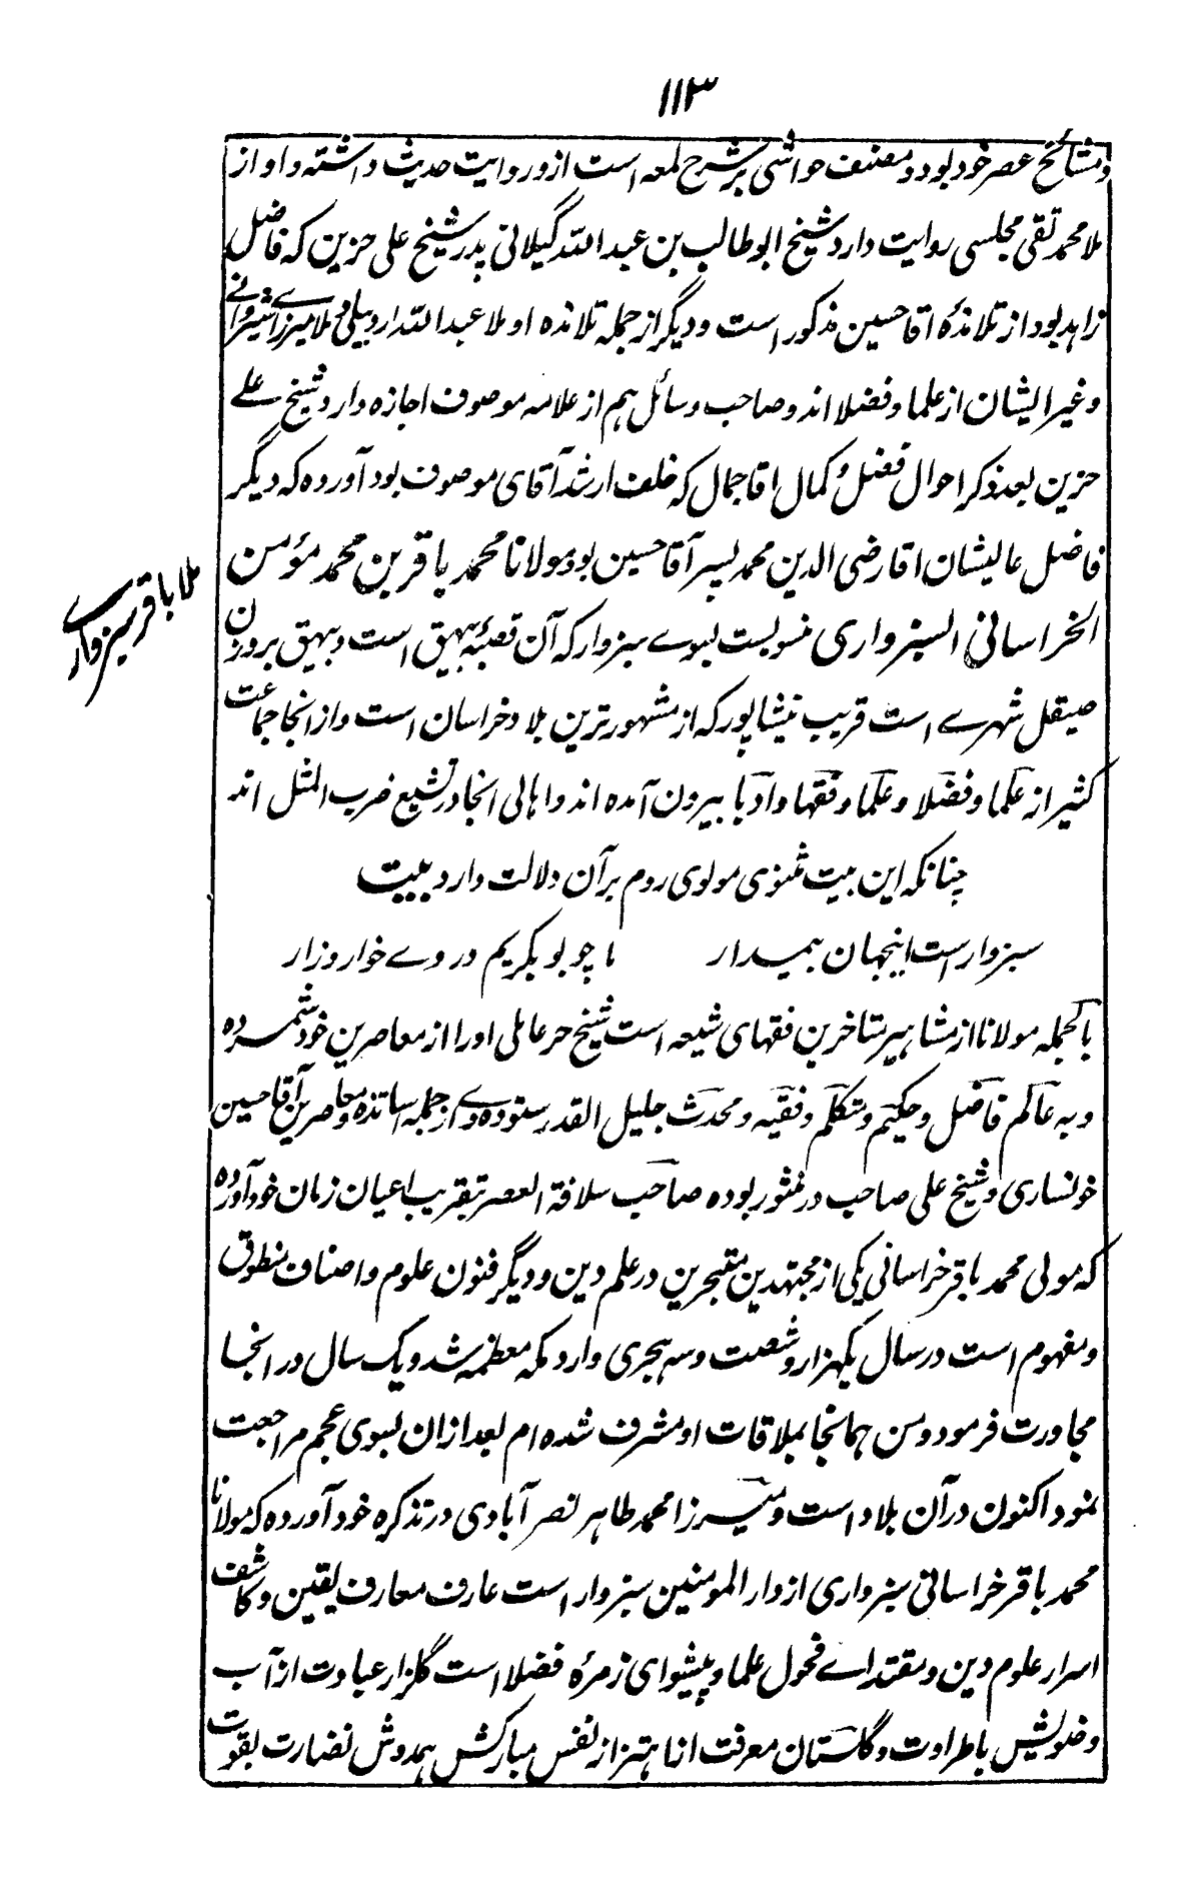 ۱۱۳
ومشائخ عصر خود بود و مصنف حواشی بر شرح لمعه است از و روایت حدیث داشته و او از
ملا محمد تقی مجلسی روایت دارد شیخ ابو طالب بن عبدالله گیلانی پدر شیخ علی حزین که فاضل
زاهد بود از تلامذۀ اقا حسین مذکور است و دیگر از جمله تلامذه او ملا عبدالله اردبیلی و ملا میرزاے شیروانے
و غیر ایشان از علما و فضلا اند و صاحب وسائل هم از علامه موصوف اجازه دارد شیخ علے
حزین بعد ذکر احوال فضل و کمال اقا جمال که خلف ارشد آقای موصوف بود آورده که دیگر
فاضل عالیشان اقا رضی الدین محمد پسر آقا حسین بود مولانا محمد باقر بن محمد مؤمن
الخراسانی السبزواری منسوبست بسوے سبزوار که آن قصبۀ بیهق است و بیهق بروزن
ملا باقر سبزوارے
صیقل شهرے است قریب نیشاپور که از مشهورترین بلاد خراسان است و از انجا جماعت
کثیر از علما و فضلا و علما و فقها و ادبا بیرون آمده اند و اهالی انجا در تشیع ضرب المثل اند
چنانکه این بیت مثنوی مولوی روم بر آن دلالت دارد بیت
سبزوار است اینجهان بیمدار ما چو بوبکریم در وے خوار و زار
بالجمله مولانا از مشاهیر متاخرین فقهای شیعه است شیخ حر عاملی اورا از معاصرین خود شمرده
و به عالم فاضل و حکیم و متکلم و فقیه و محدث جلیل القدر ستوده وے از جمله اساتذه و معاصرین آقا حسین
خونساری و شیخ علی صاحب در منثور بوده صاحب سلافة العصر بتقریب اعیان زمان خود آورده
که مولی محمد باقر خراسانی یکی از مجتهدین متبحرین در علم دین و دیگر فنون علوم و اصناف منطوق
و مفهوم است در سال یکهزار و شصت و سه هجری وارد مکه معظمه شد و یک سال در انجا
مجاورت فرمود و من همانجا بملاقات او مشرف شده ام بعد ازان بسوی عجم مراجعت
نمود اکنون در آن بلاد است و میرزا محمد طاهر نصر آبادی در تذکره خود آورده که مولانا
محمد باقر خراسانی سبزواری از دار المومنین سبزوار است عارف معارف یقین و کاشف
اسرار علوم دین و مقتداے فحول علما و پیشوای زمرۀ فضلا است گلزار عبادت از آب
وضویش باطراوت و گلستان معرفت از اهتزاز نفس مبارکش همدوش نضارت بقوت